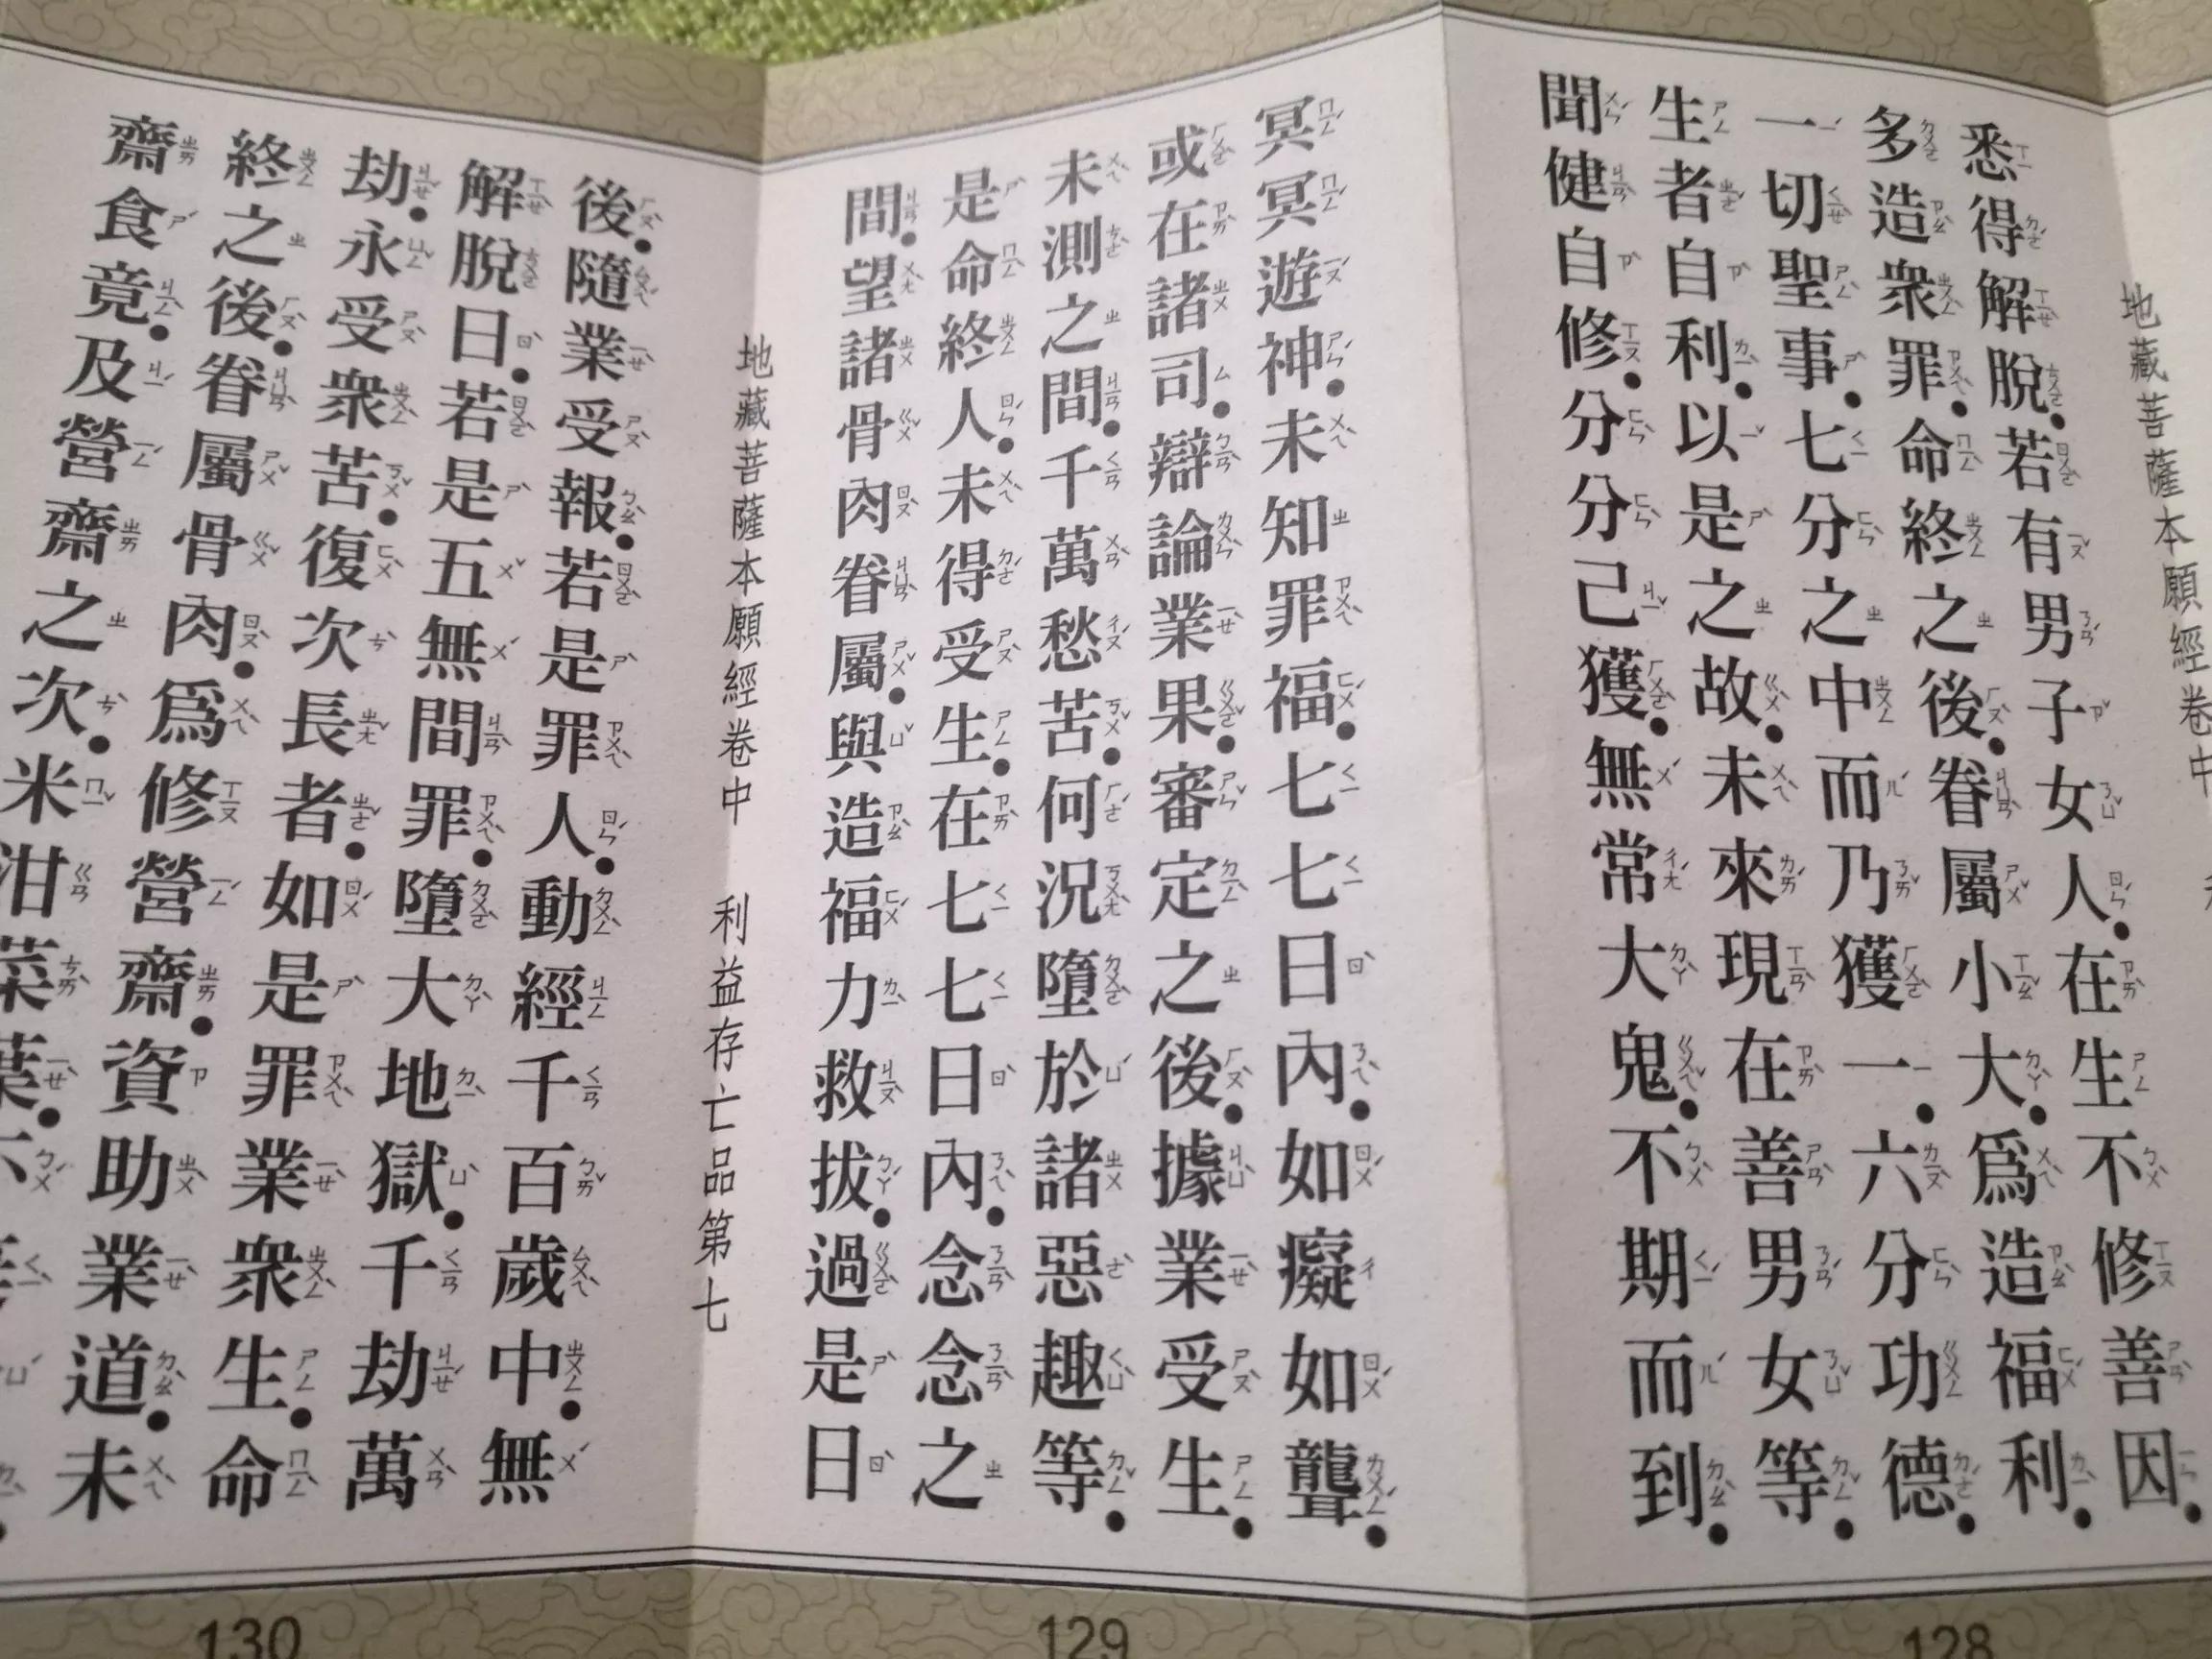 地藏菩薩本願經卷中
悉得解脫．若有男子女人．在生不修善因．
多造衆罪．命終之後．眷屬小大．爲造福利．
一切聖事．七分之中而乃獲一．六分功德．
生者自利．以是之故．未來現在善男女等．
聞健自修．分分己獲．無常大鬼．不期而到．
128
冥冥遊神．未知罪福．七七日內．如癡如聾．
或在諸司．辯論業果．審定之後．據業受生．
未測之間．千萬愁苦．何況墮於諸惡趣等．
是命終人．未得受生．在七七日內．念念之
間．望諸骨肉眷屬．與造福力救拔．過是日
129
地藏菩薩本願經卷中 利益存亡品第七
後．隨業受報．若是罪人．動經千百歲中．無
解脫日．若是五無間罪．墮大地獄．千劫萬
劫．永受衆苦．復次長者．如是罪業衆生．命
終之後．眷屬骨肉．爲修營齋．資助業道．未
齋食竟．及營齋之次．米泔菜葉．不
130